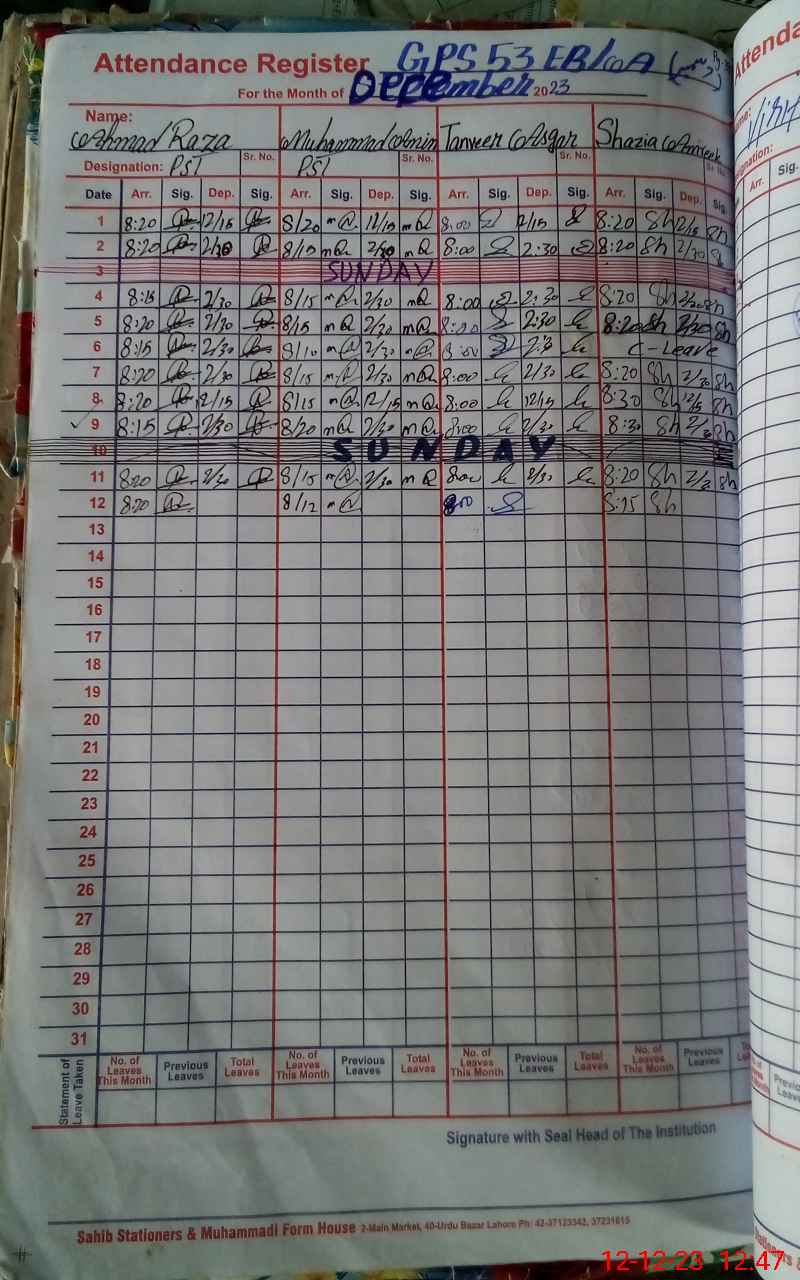 Attendance Register GPS 53 EB/A
For the Month of December 2023
Name: Ahmad Raza Muhammad Amin Tanveer Asgar Shazia
Designation: PST Sr. No. PST Sr. No. Sr. No. Sr No.
Date Arr. Sig. Dep. Sig. Arr. Sig. Dep. Sig. Arr. Sig. Dep. Sig. Arr. Sig. Dep. Sig.
1 8:20 12/15 8/20 12/15 8:00 12/15 8:20 Sh 12/15 Sh
2 8:20 2/30 8/15 2/30 8:00 2:30 8:20 Sh 2/30
3 SUNDAY
4 8:15 2/30 8/15 2/30 8:00 2:30 8:20 Sh 2/30 Sh
5 8:20 2/30 8/15 2/30 8:00 2:30 8:20 Sh 2/30 Sh
6 8:15 2/30 8/10 2/30 8:00 2:30 C-Leave
7 8:20 2/30 8/15 2/30 8:00 2/30 8:20 Sh 2/30 Sh
8 8:20 12/15 8/15 12/15 8:00 12/15 8:30 Sh 12/15 Sh
9 8:15 2/30 8/20 2/30 8:00 2/30 8:30 Sh 2/30 Sh
10 SUNDAY
11 8:20 2/30 8/15 2/30 8:00 2/30 8:20 Sh Sh
12 8:20 8/12 8:00 8:25 Sh
13
14
15
16
17
18
19
20
21
22
23
24
25
26
27
28
29
30
31
Statement of Leave Taken
No. of Leaves This Month Previous Leaves Total Leaves No. of Leaves This Month Previous Leaves Total Leaves No. of Leaves This Month Previous Leaves Total Leaves No. of Leaves This Month Previous Leaves
Signature with Seal Head of The Institution
Sahib Stationers & Muhammadi Form House 2-Main Market, 40-Urdu Bazar Lahore Ph: 42-37123342, 37231615
12-12-23 12:47